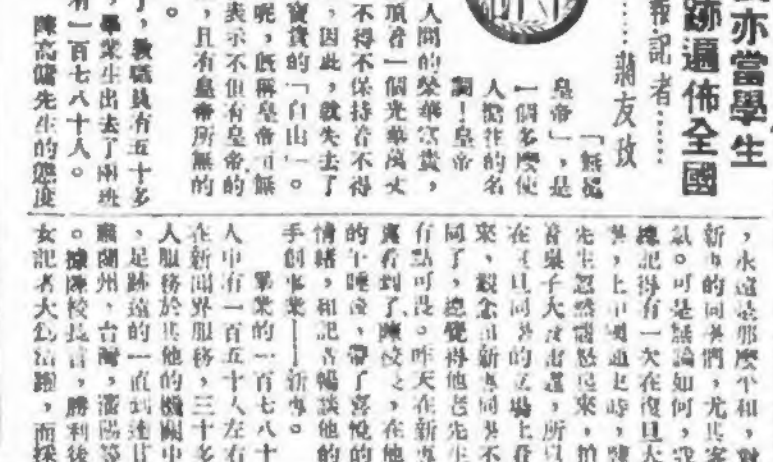 亦當學生
跡遍佈全國
報記者……
……蔣友玫
「無冕
皇帝」,是
一個多麼使
人艷往的名
詞!皇帝
人間的榮華富貴,
頂着一個光華萬丈
不得不保持着不得
,因此,就失去了
寶貴的「自由」。
呢,既稱皇帝而無
表示不但有皇帝的
,且有皇帝所無的
。
了,教職員有五十多
,畢業生出去了兩班
有一百七八十人。
陳高傭先生的態度
,永遠是那麼平和,對
新專的同學們,尤其客
氣。可是無論如何,
總記得有一次在復旦大
學,上中國通史時,陳
先生忽然震怒起來,拍
音桌子大
在復旦同學的立場上看
來,觀念與新專同學不
同了,總覺得他老先生
有點可畏。昨天在新專
裏看到了陳校長,在他
的午睡後,帶了喜悅的
情緒,和記者暢談他的
手創事業——新專。
畢業的一百七八十
人中有一百五十人左右
在新聞界服務,三十多
人服務於其他的機關中
,足跡遠的一直到達甘
肅蘭州,台灣,瀋陽等
。據陳校長言,勝利後
女記者大為活躍,而採